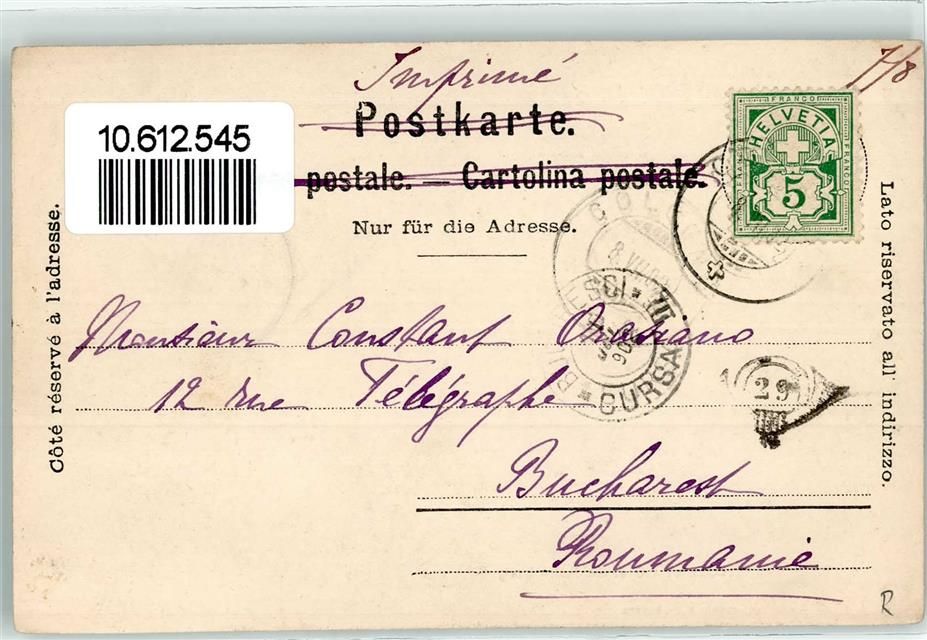 Imprimé
7/8
Postkarte.
postale. — Cartolina postale.
Nur für die Adresse.
10.612.545
FRANCO
HELVETIA
FRANCO
FRANCO
5
Côté réservé à l'adresse.
Lato riservato all' indirizzo.
COLO
8 VII
BU ESCI * III
CURSA
29
Monsieur Constant
12 rue Télégraphe
Bucharest
Roumanie
R